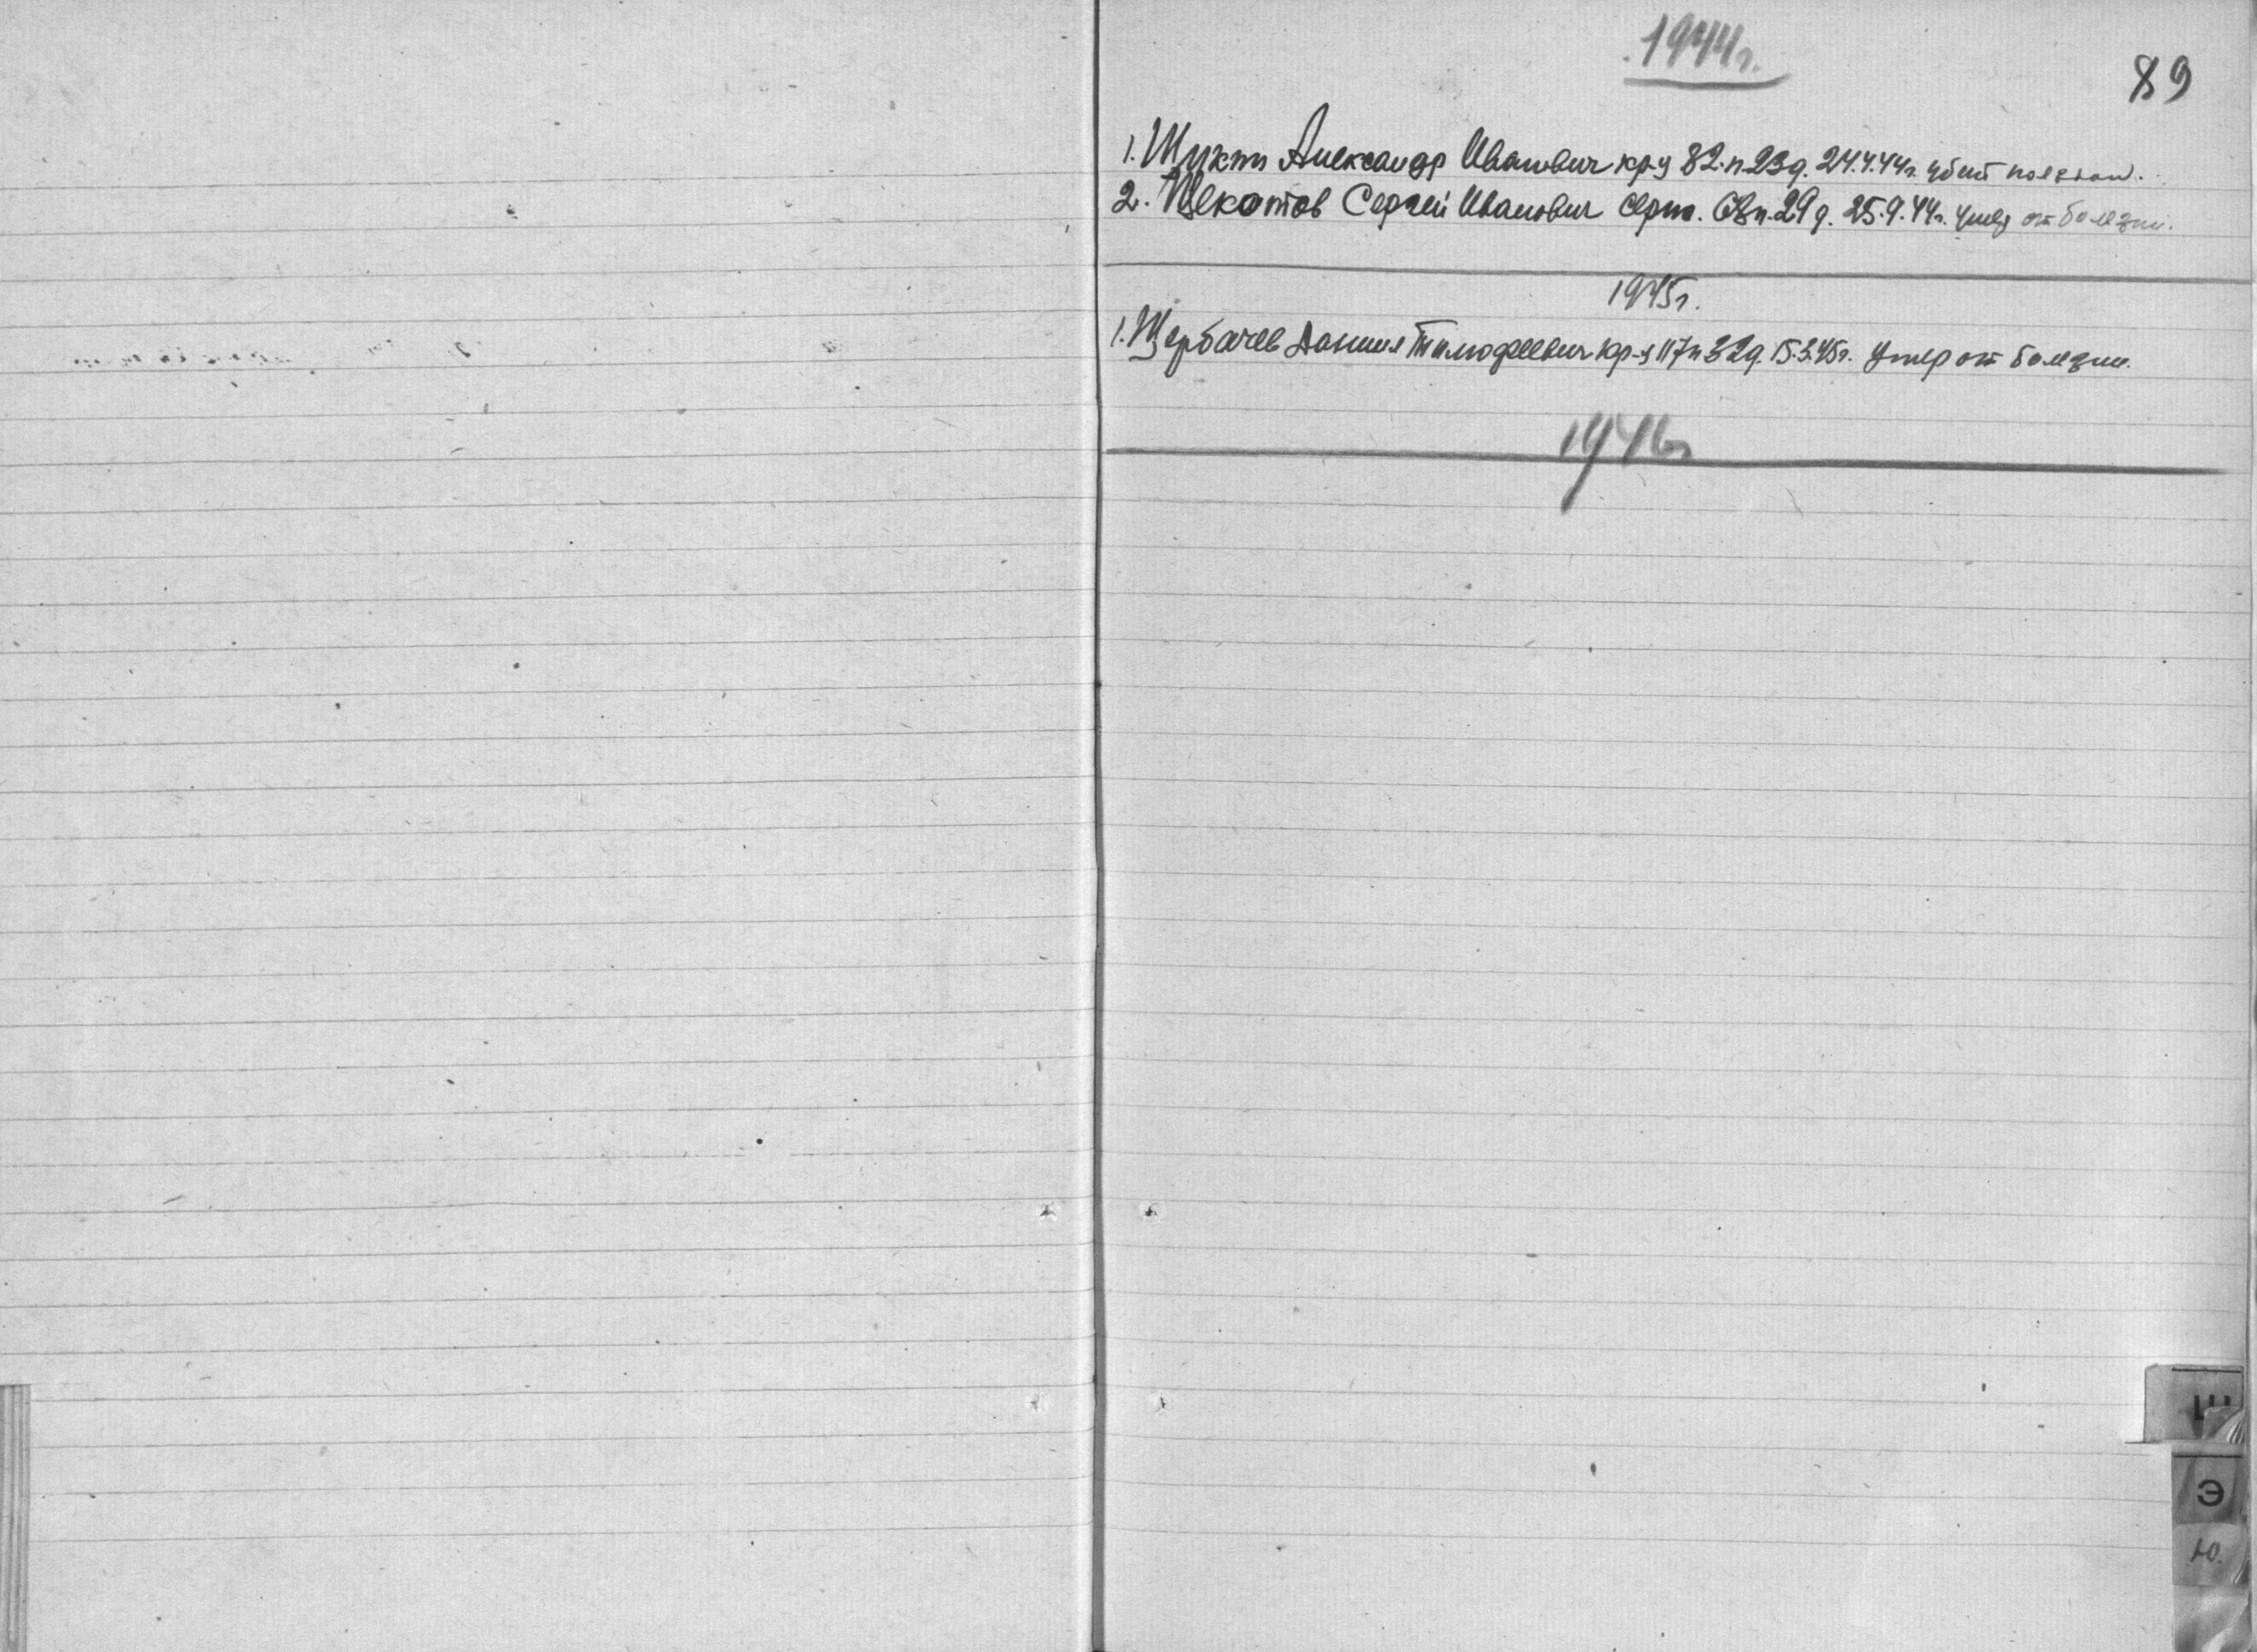 1944г.
89
1. Щукин Александр Иванович кр-ц 82.п.23д. 24.4.44г. убит поездом.
2. Щекотов Сергей Иванович серж. Свп.29д. 25.9.44г. умер от болезни.
1945г.
1. Щербачев Даниил Тимофеевич кр-ц 117п 32д. 15.3.45г. Умер от болезни.
1946г
Э
Ю.